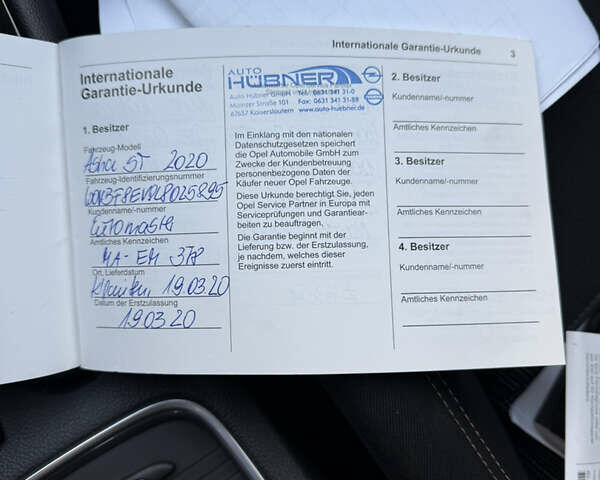 Internationale Garantie-Urkunde 3
Internationale
Garantie-Urkunde
1. Besitzer
Fahrzeug-Modell
Astra ST 2020
Fahrzeug-Identifizierungsnummer
Kundenname/-nummer
Automaster
Amtliches Kennzeichen
MA-EM 378
Ort, Lieferdatum
19.03.20
Datum der Erstzulassung
19.03.20
AUTO
HÜBNER
Auto Hübner GmbH Tel: 0631 341 31-0
Mainzer Straße 101 Fax: 0631 341 31-88
67657 Kaiserslautern www.auto-huebner.de
Im Einklang mit den nationalen
Datenschutzgesetzen speichert
die Opel Automobile GmbH zum
Zwecke der Kundenbetreuung
personenbezogene Daten der
Käufer neuer Opel Fahrzeuge.
Diese Urkunde berechtigt Sie, jeden
Opel Service Partner in Europa mit
Serviceprüfungen und Garantiear-
beiten zu beauftragen.
Die Garantie beginnt mit der
Lieferung bzw. der Erstzulassung,
je nachdem, welches dieser
Ereignisse zuerst eintritt.
2. Besitzer
Kundenname/-nummer
Amtliches Kennzeichen
3. Besitzer
Kundenname/-nummer
Amtliches Kennzeichen
4. Besitzer
Kundenname/-nummer
Amtliches Kennzeichen